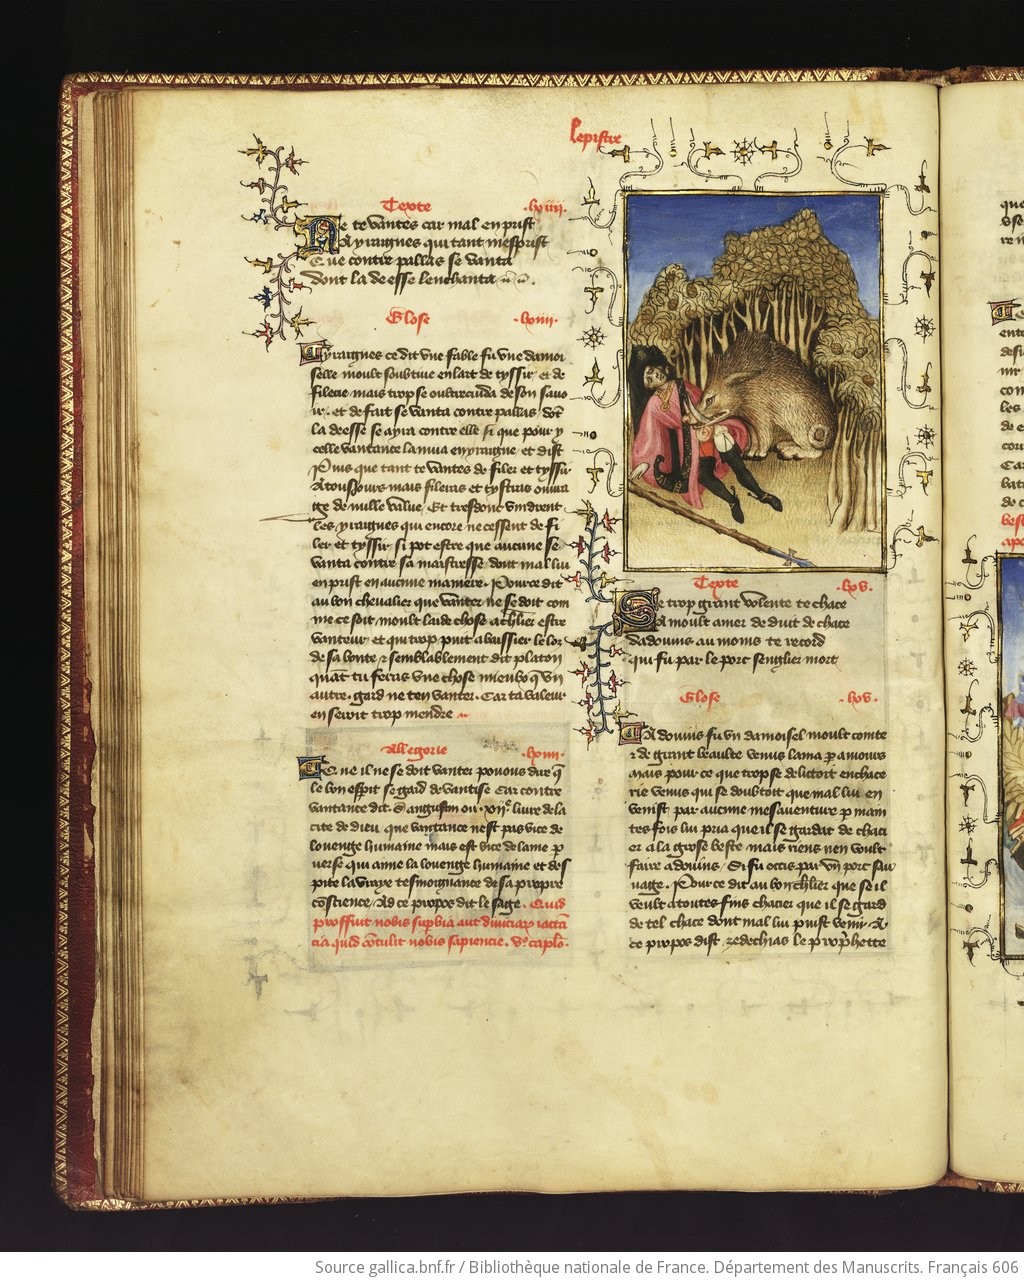 Lepistre
Texte .lxiiii.
Ne te vantes car mal en prist
A yraignes qui tant mesprist
Que contre pallas se vanta
dont la deesse lenchanta
Glose .lxiiii.
Yraignes ce dit vne fable fu vne damoi
selle moult soubtiue en lart de tyssir et de
filerie mais trop se oultrecuida de son sauo
ir. et de fait se vanta contre pallas dōt
la deesse se ayra contre elle si que pour y
celle vantance la mua en yraigne et dist
Puis que tant te vantes de filer et tyssir
A tousiours mais fileras et tystras ouura
ge de nulle value. Et tresdont vindrent
les yraignes qui encore ne cessent de fi
ler et tyssir. si pot estre que aucune se
vanta contre sa maistresse dont mal lui
en prist en aucune maniere. Pource dit
au bon cheualier que vanter ne se doit com
me ce soit moult laide chose a chlīer estre
vanteur et qui trop puit abaissier le los
de sa bonte et semblablement dit platon
quāt tu feras vne chose mieulx q̄ vn
autre. gard ne ten vanter. Car ta valeur
en seroit trop mendre
Allegorie .lxiiii.
Que il ne se doit vanter pouons dire q̄
le bon esperit se gard de vantise Car contre
vantance dit. S. augustin ou .xije. liure de la
cite de dieu que vantance nest pas vice de
louenge humaine mais est vice de lame p
uerse qui aime la louenge humaine et des
pite la vraye tesmoignance de sa propre
cōscience. Ad ce propos dit le sage. Quid
proffuit nobis supbia aut diuiciar iactan
cia quid cōtulit nobis sapiencie. v.o caplo.
que
Texte .lxv.
Se trop grant volente te chace
A moult amer deduit de chace
dadonius au moins te record
qui fu par le porc senglier mort
Glose .lxv.
Adonius fu vn damoisel moult cointe
et de grant beaulte venus lama p amours
mais pour ce que trop se delictoit en chace
rie venus qui se doubtoit que mal lui en
venist par aucune mesauenture p main
tes fois lui pria que il se gardast de chaci
er a la grosse beste mais riens nen voult
faire adonius. Si fu occis par vn porc sau
uage. Pource dit au bon chlīer que se il
veult a toutes fins chacier que il se gard
de tel chace dont mal lui puist venir. A
ce propos dist zedechias le prophette
Source gallica.bnf.fr / Bibliothèque nationale de France. Département des Manuscrits. Français 606